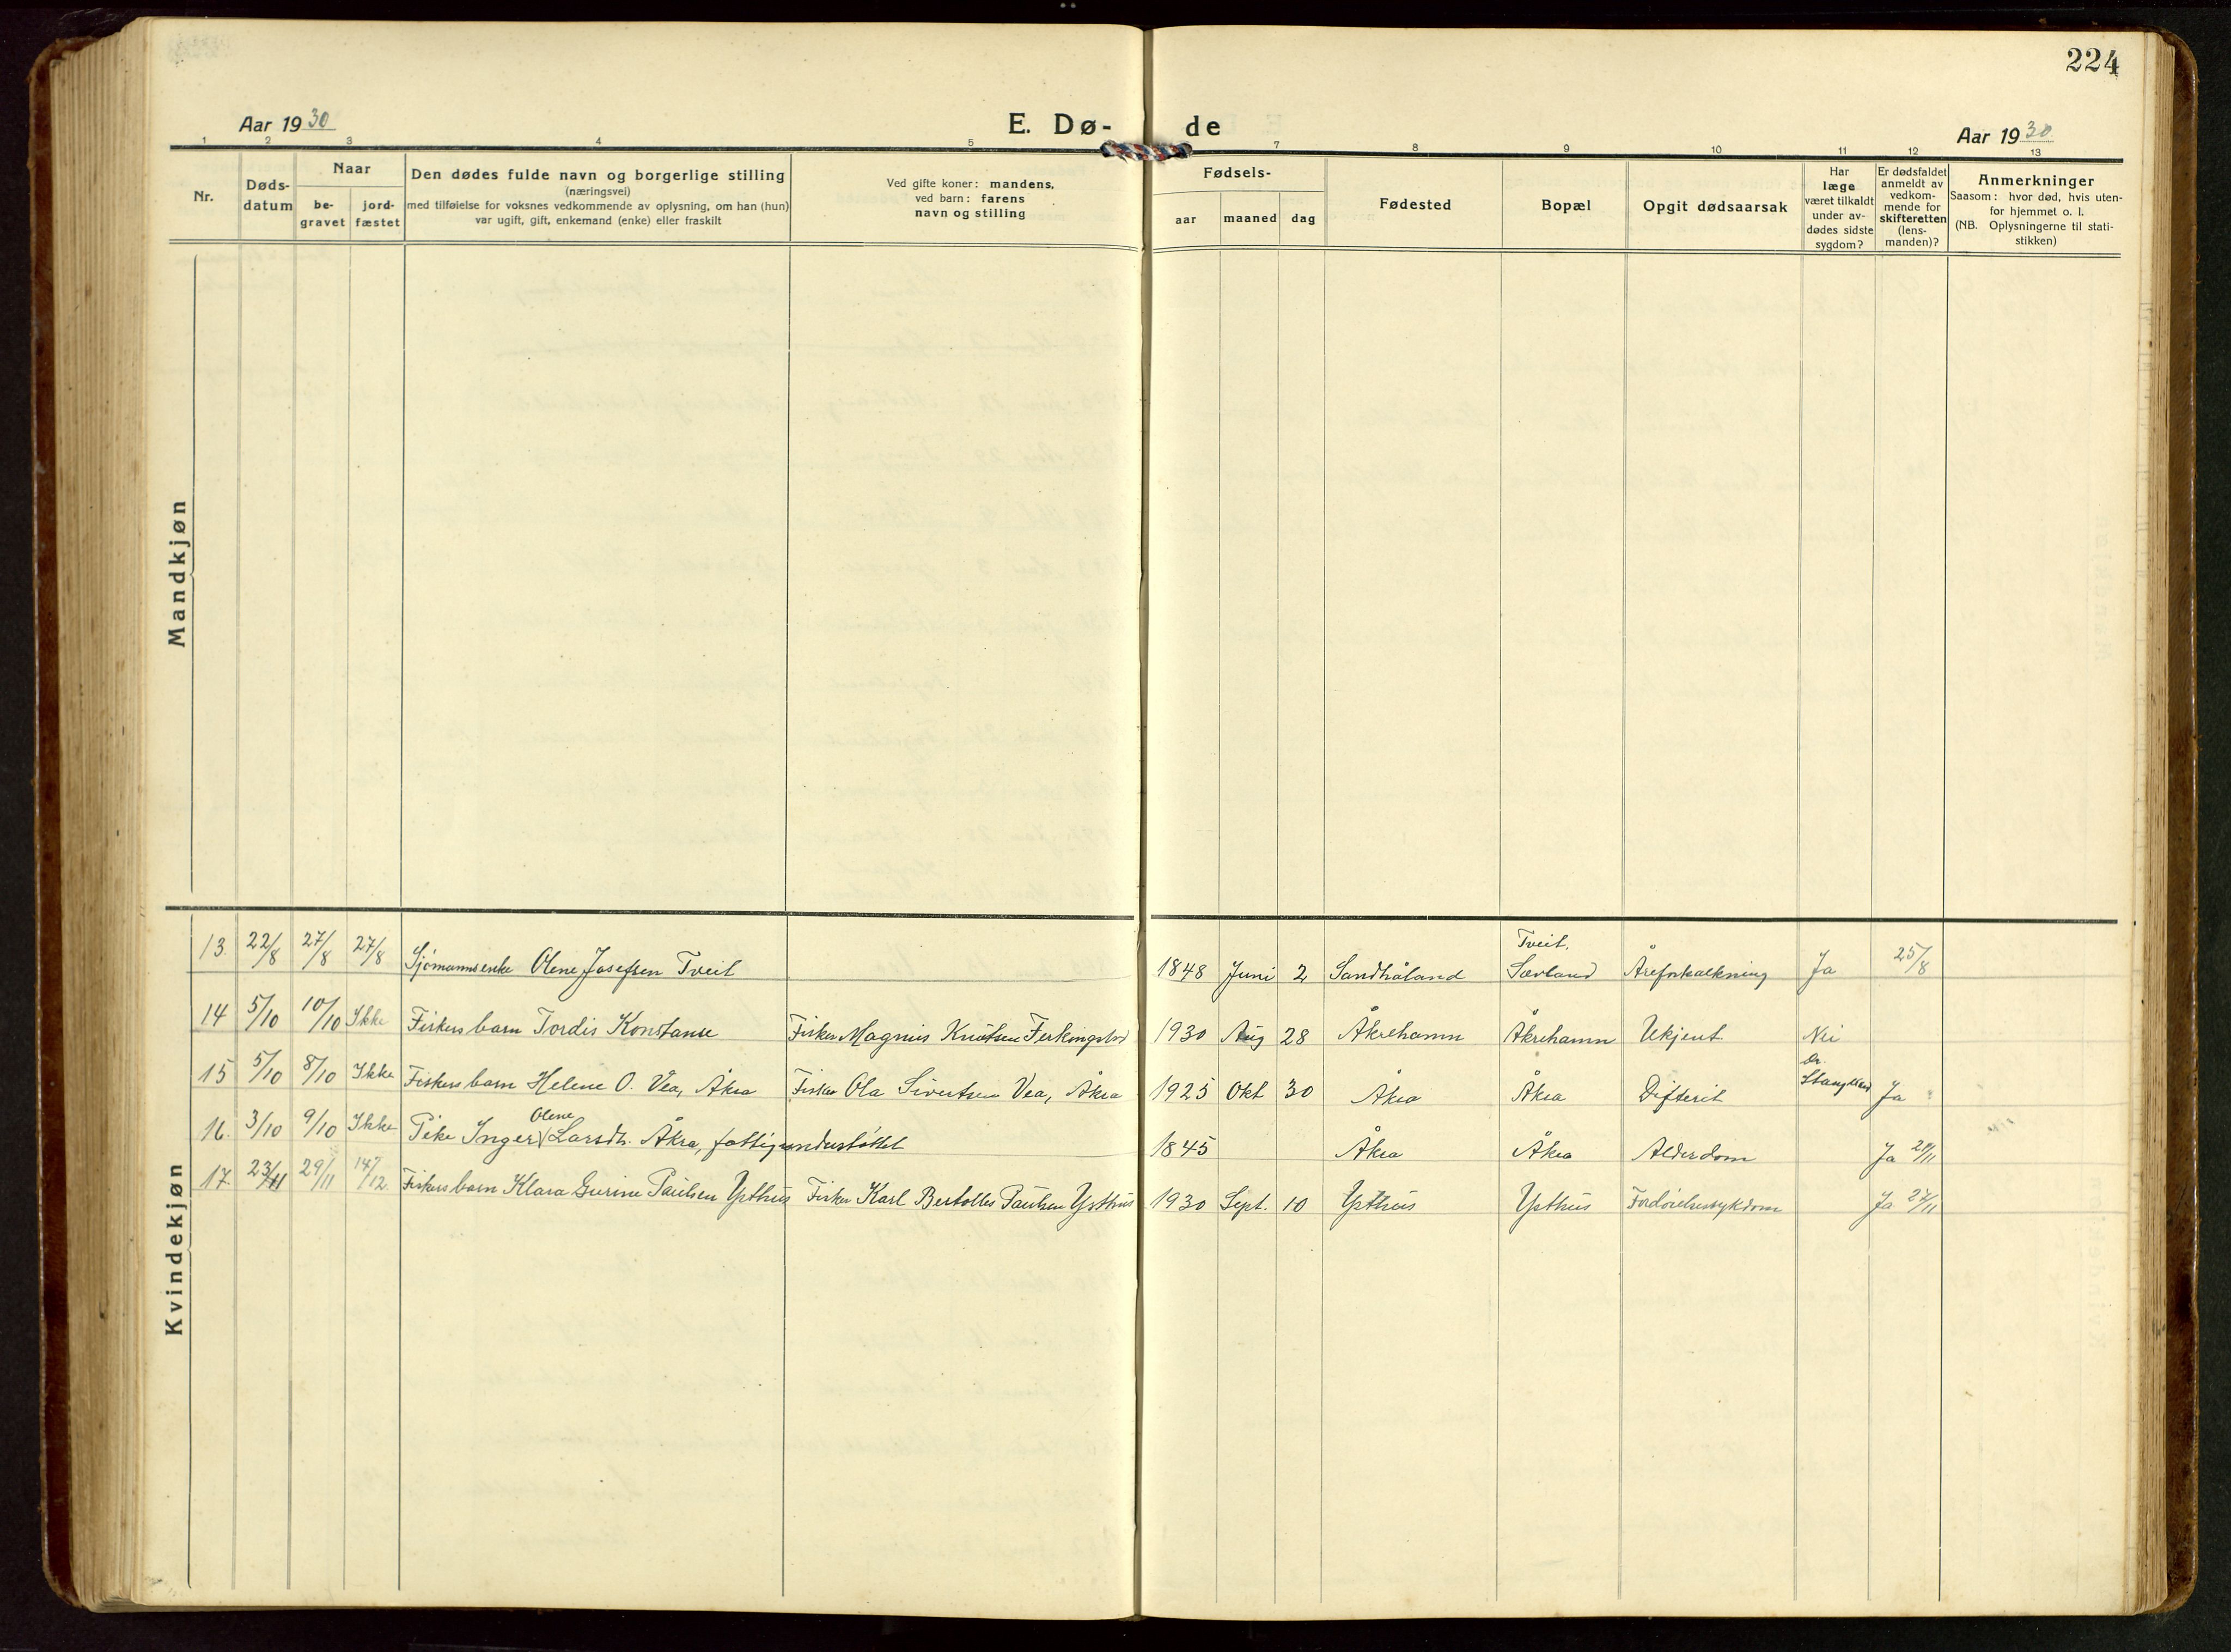 224
Aar 1930
E. Dø-
de
Aar 1930
1 2 3 4 5 7 8 9 10 11 12 13
Nr.
Døds-
datum
Naar
be-
gravet
jord-
fæstet
Den dødes fulde navn og borgerlige stilling
(næringsvei)
med tilføielse for voksnes vedkommende av oplysning, om han (hun)
var ugift, gift, enkemand (enke) eller fraskilt
Ved gifte koner: mandens,
ved barn: farens
navn og stilling
Fødsels-
aar maaned dag
Fødested
Bopæl
Opgit dødsaarsak
Har
læge
været tilkaldt
under av-
dødes sidste
sygdom?
Er dødsfaldet
anmeldt av
vedkom-
mende for
skifteretten
(lens-
manden)?
Anmerkninger
Saasom: hvor død, hvis uten-
for hjemmet o. l.
(NB. Oplysningerne til stati-
stikken)
Mandkjøn
Kvindekjøn
Tveit,
13. 22/8 27/8 27/8 Sjömannsenke Olene Josefsen Tveit 1848 Juni 2 Sandhåland Sævland Åreforkalkning Ja 25/8
14 5/10 10/10 Ikke Fiskers barn Tordis Konstanse Fisker Magnus Knutsen Ferkingstad 1930 Aug 28 Åkrehamn Åkrehamn Ukjent Nei
Dr.
15 5/10 8/10 Ikke Fiskers barn Helene O. Vea, Åkra Fisker Ola Sivertsen Vea, Åkra 1925 Okt 30 Åkra Åkra Difterit Ja
Olene
16. 3/10 9/10 Ikke Pike Inger Larsdtr. Åkra, fattigunderstöttet 1845 Åkra Åkra Alderdom Ja
17. 23/11 29/11 14/12. Fiskers barn Klara Gurine Paulsen Ysthus Fisker Karl Bertolles Paulsen Ysthus 1930 Sept. 10 Ysthus Ysthus Fordöielsessykdom Ja 27/11